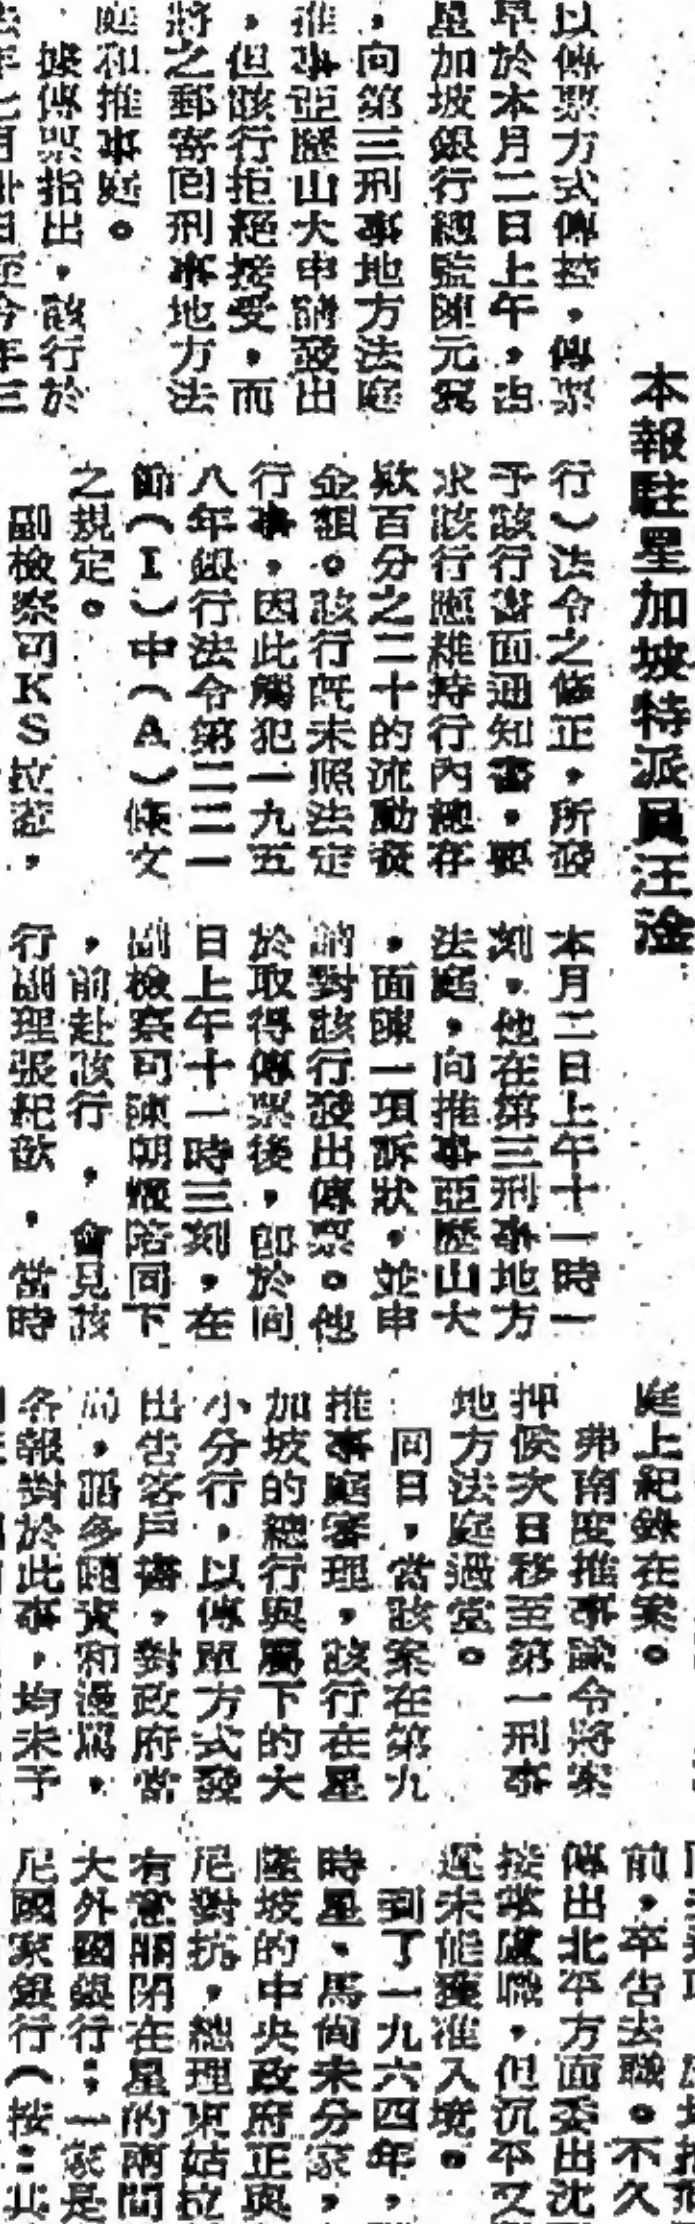 本報駐星加坡特派員汪淦
以傳票方式傳控，傳票
早於本月二日上午，由
星加坡銀行總監陳元
，向第三刑事地方法庭
推事亞歷山大申請發出
，但該行拒絕接受，而
將之郵寄回刑事地方法
庭和推事庭。
據傳票指出，該行於
年七月卅日至今年三
行）法令之修正，所發
予該行書面通知書，要
求該行應維持行內總存
款百分之二十的流動資
金額。該行既未照法定
行事，因此觸犯一九五
八年銀行法令第三二一
節（I）中（A）條文
之規定。
副檢察司KS拉
本月二日上午十一時一
刻，他在第三刑事地方
法庭，向推事亞歷山大
，面陳一項訴狀，並申
請對該行發出傳票。他
於取得傳票後，即於同
日上午十一時三刻，在
副檢察司陳朝 陪同下
，前赴該行，會見該
行副理張紀歆，當時
庭上紀錄在案。
弗南度推事諭令將案
押候次日移至第一刑事
地方法庭過堂。
同日，當該案在第九
推事庭審理，該行在星
加坡的總行與屬下的大
小分行，以傳單方式發
出告客戶書，對政府當
局，諸多 責和漫罵，
各報對於此事，均未予
前，卒告去職。不久
傳出北平方面委出沈
接掌 職，但沉平又
遲未能獲准入境。
到了一九六四年，
時星、馬尚未分家，
隆坡的中央政府正與
尼對抗，總理東姑拉
有意關閉在星的兩間
大外國銀行：一家是
尼國家銀行（按：